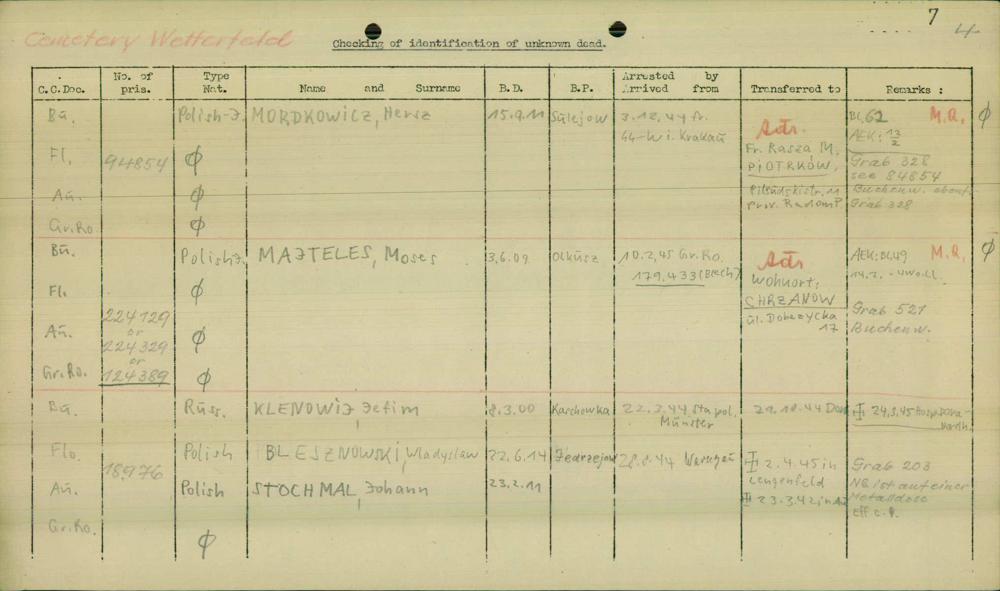 7
4
Cemetery Wetterfeld
Checking of identification of unknown dead.
C.C.Doc. No. of pris. Type Nat. Name and Surname B.D. B.P. Arrested by Arrived from Transferred to Remarks :
Bu. Polish-J. MORDKOWICZ, Hersz 15.9.11 Sulejow 3.12.44 fr. 44-W i. Krakau Adr. Bl. 62 M.R. ϕ
AEK: 13/2
Fl. 94854 ϕ Fr. Rasza M. PIOTRKÓW, Grab 328
see 84854
Au. ϕ Pilsudskistr. 11 Buchenw. ebenf.
prov. Radom? Grab 328
Gr.Ro. ϕ
Bu. Polish J. MAJTELES, Moses 3.6.09 Olkusz 10.2.45 Gr.Ro. Adr. AEK: Bl. 49 M.R. ϕ
179.433 (Buch) 14.2.
Fl. ϕ Wohnort:
CHRZANOW Grab 521
224129 ul. Dobczycka 17 Buchenw.
or
Au. 224329 ϕ
or
Gr.Ro. 124389 ϕ
Bu. Russ. KLENOWIJ Jefim 8.3.00 Karchowka 22.3.44 Sta pol. Münster 29.10.44 24.3.45
Flo. 18976 Polish BLESZNOWSKI, Wladyslaw 22.6.14 Jedrzejow 28.8.44 2.4.45 in Lengenfeld Grab 203
Au. Polish STOCHMAL, Johann 23.2.11 23.3.42 in NB ist auf einer
Metalldose
eff. c.p.
Gr.Ro. ϕ